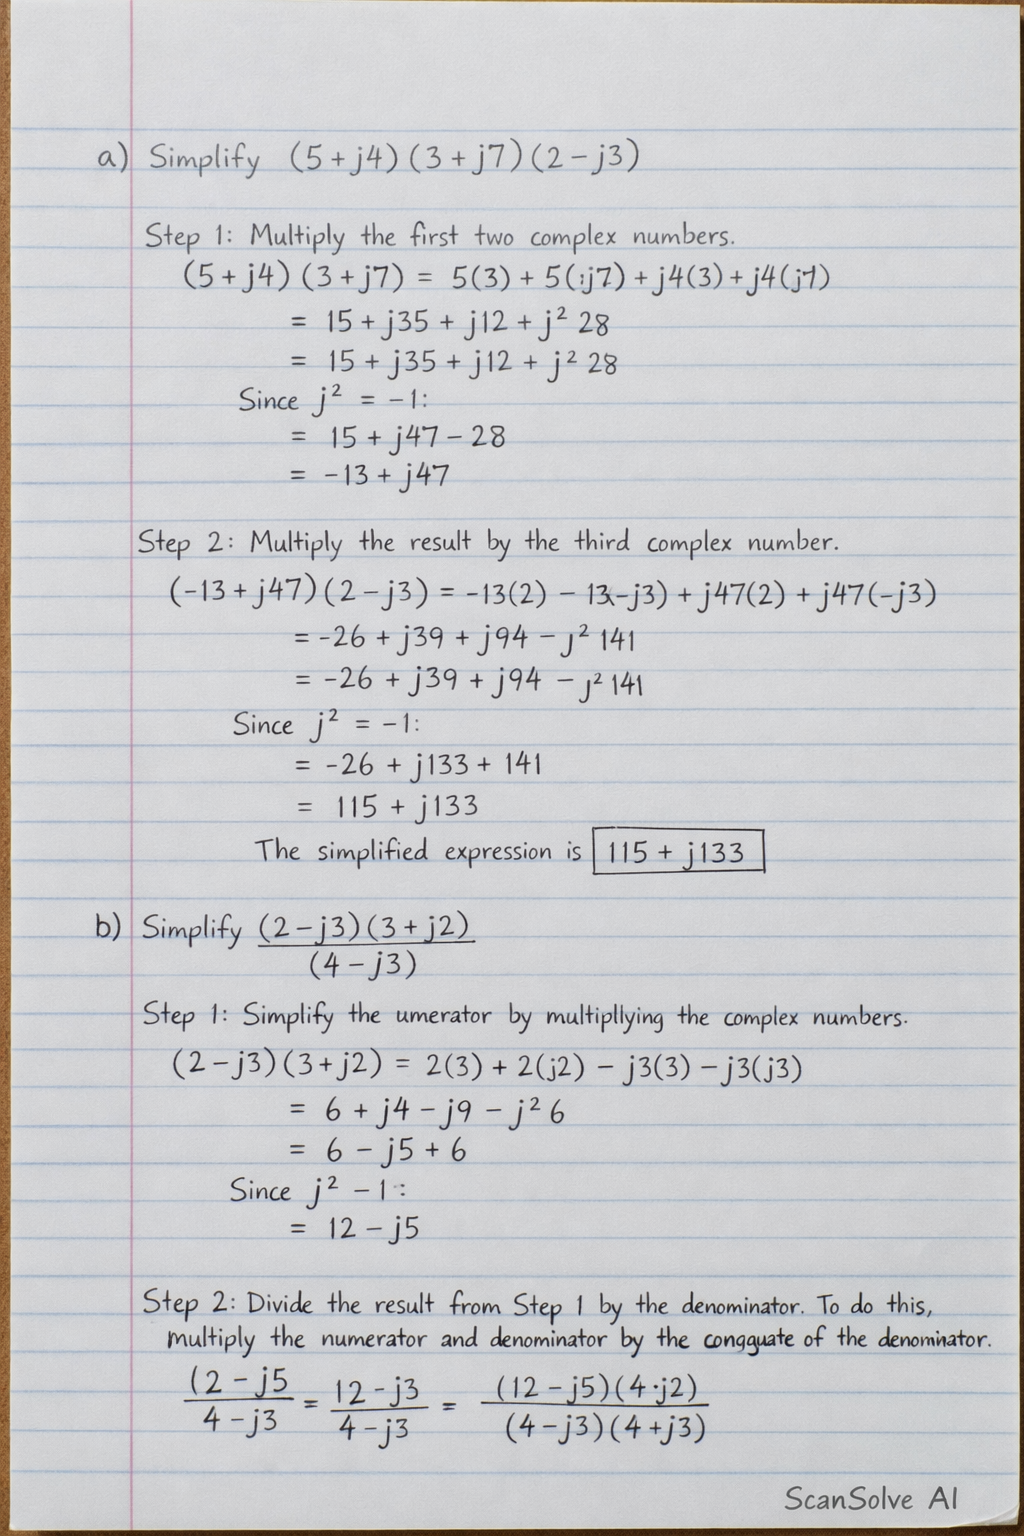 a) Simplify (5 + j4) (3 + j7) (2 - j3)
Step 1: Multiply the first two complex numbers.
(5 + j4) (3 + j7) = 5(3) + 5(:j7) + j4(3) + j4(j7)
= 15 + j35 + j12 + j² 28
= 15 + j35 + j12 + j² 28
Since j² = -1:
= 15 + j47 - 28
= -13 + j47
Step 2: Multiply the result by the third complex number.
(-13 + j47) (2 - j3) = -13(2) - 13(-j3) + j47(2) + j47(-j3)
= -26 + j39 + j94 - j² 141
= -26 + j39 + j94 - j² 141
Since j² = -1:
= -26 + j133 + 141
= 115 + j133
The simplified expression is 115 + j133
b) Simplify (2 - j3) (3 + j2)
(4 - j3)
Step 1: Simplify the umerator by multipllying the complex numbers.
(2 - j3) (3 + j2) = 2(3) + 2(j2) - j3(3) - j3(j3)
= 6 + j4 - j9 - j² 6
= 6 - j5 + 6
Since j² - 1:
= 12 - j5
Step 2: Divide the result from Step 1 by the denominator. To do this,
multiply the numerator and denominator by the congguate of the denominator.
(2 - j5 = 12 - j3 = (12 - j5) (4·j2)
4 - j3 4 - j3 (4 - j3) (4 + j3)
ScanSolve AI